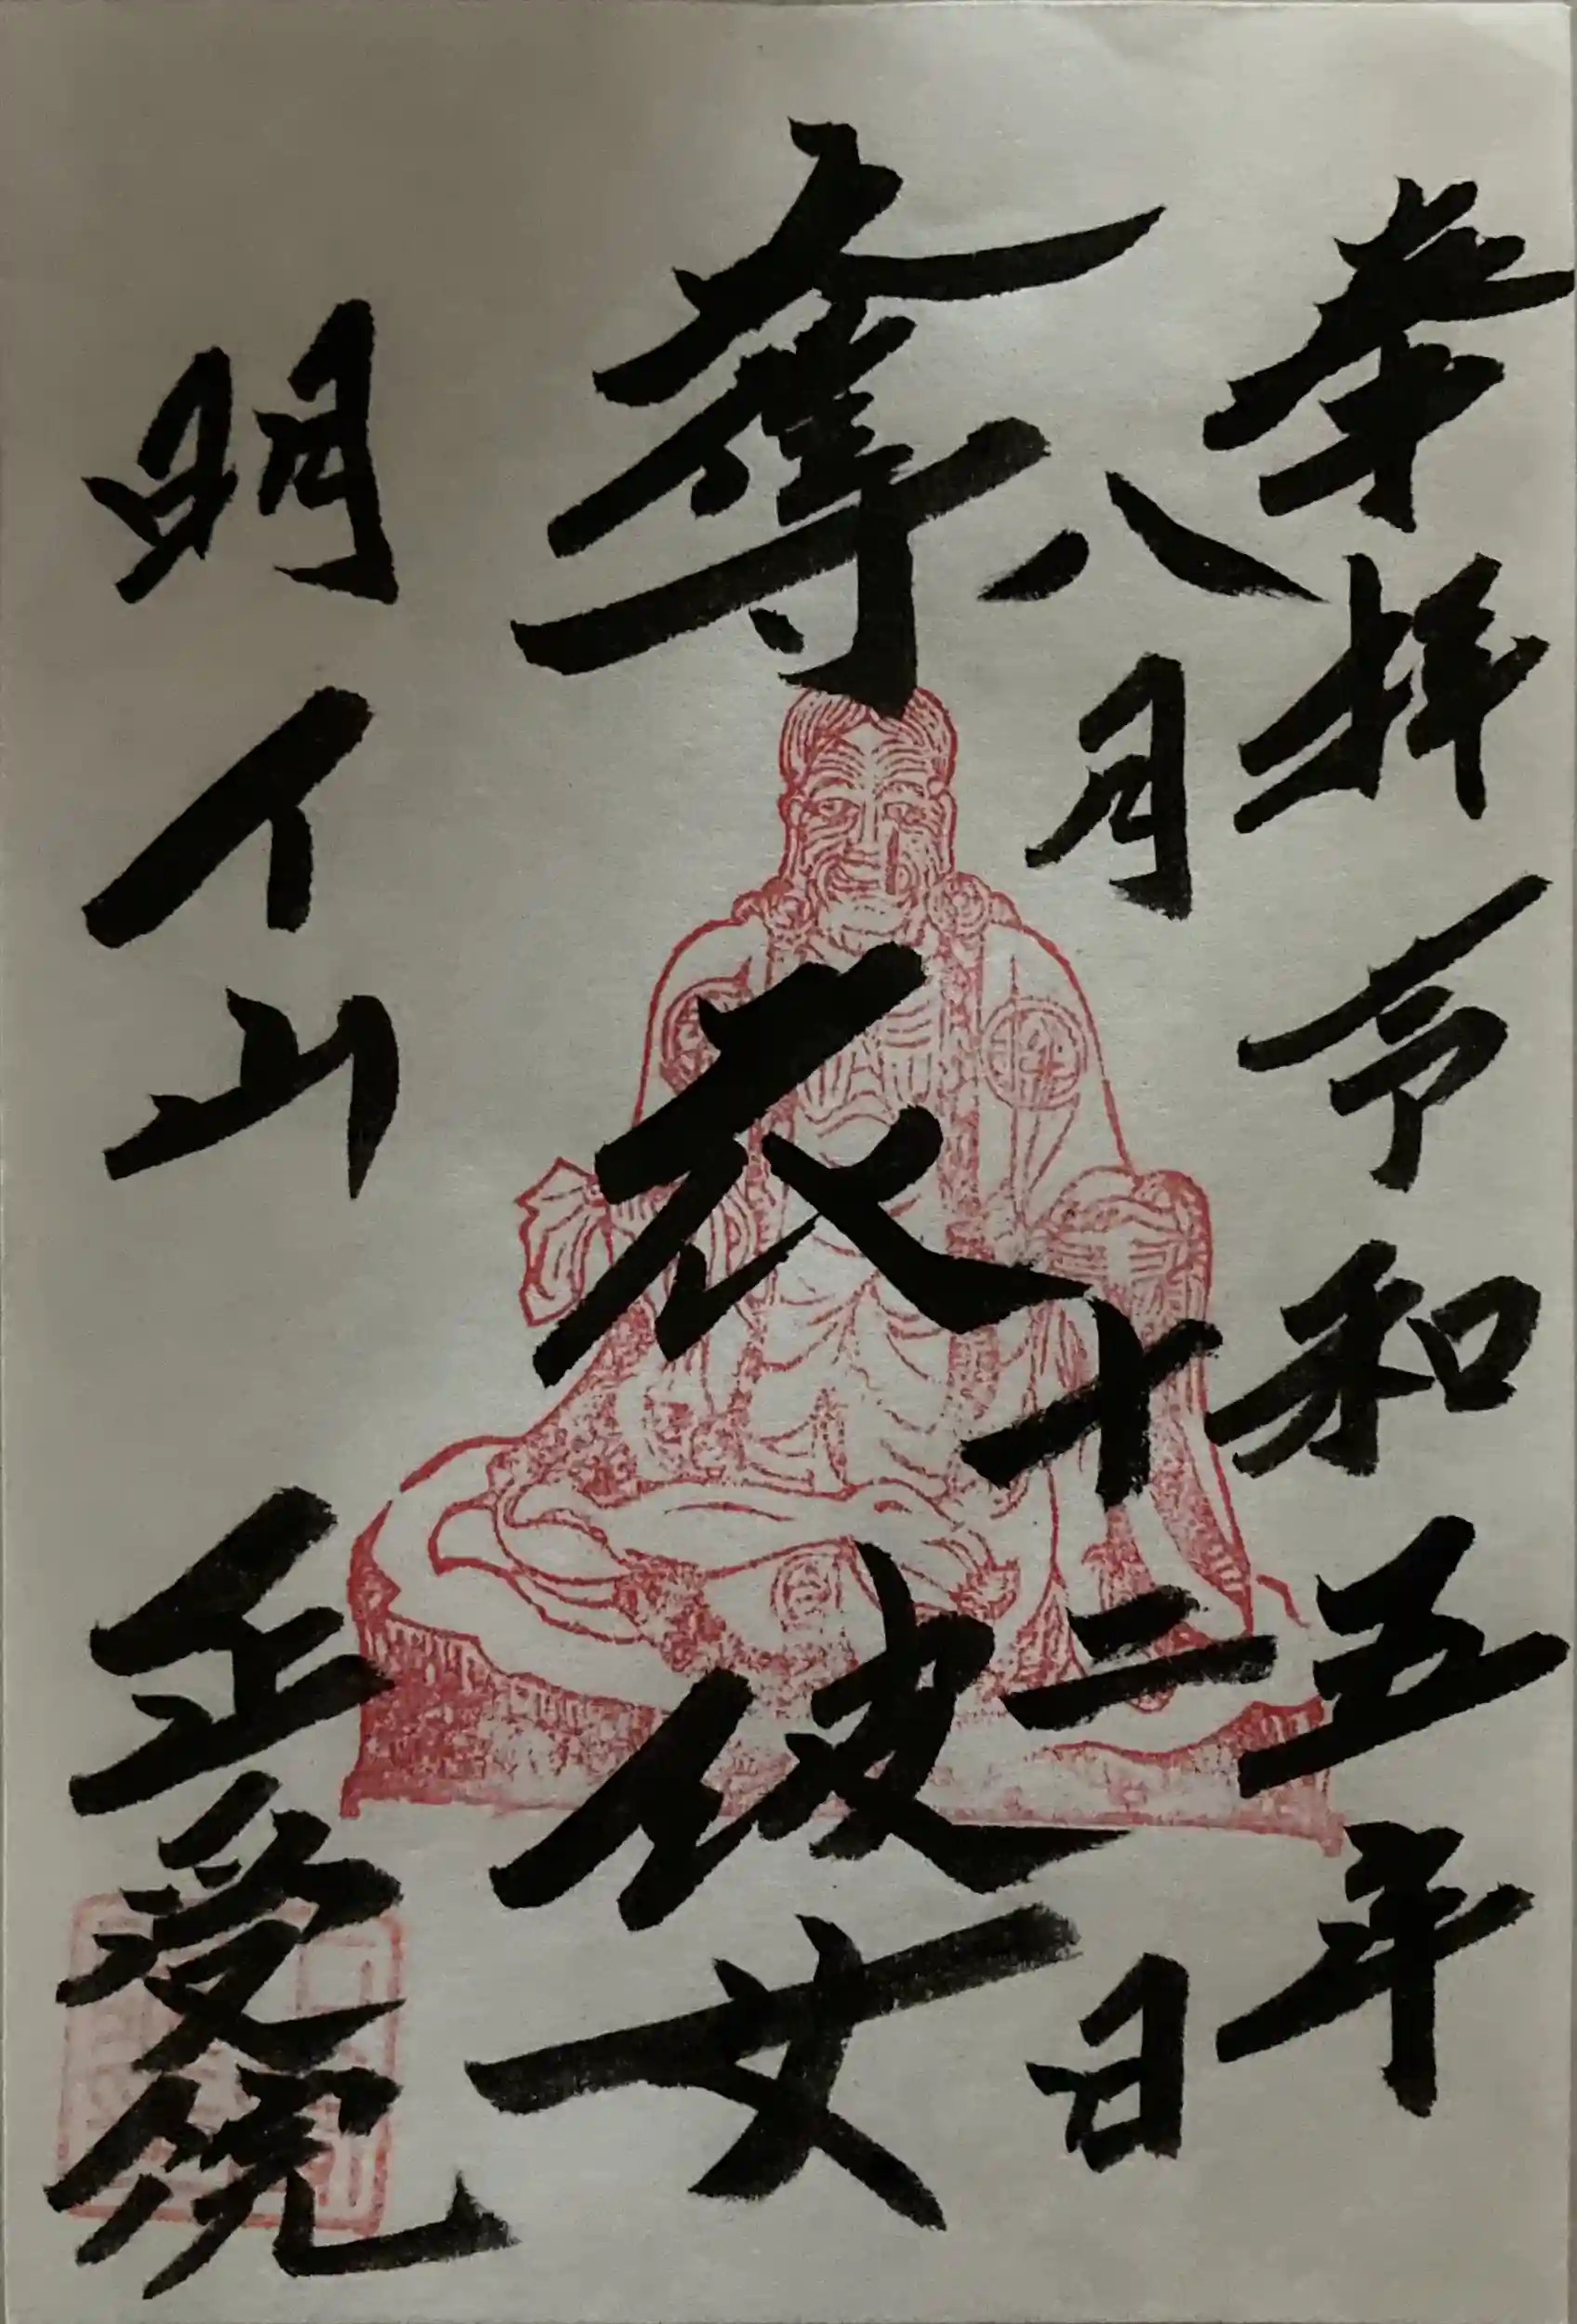 奉拝令和五年
八月十二日
奪衣婆
明了山 正受院